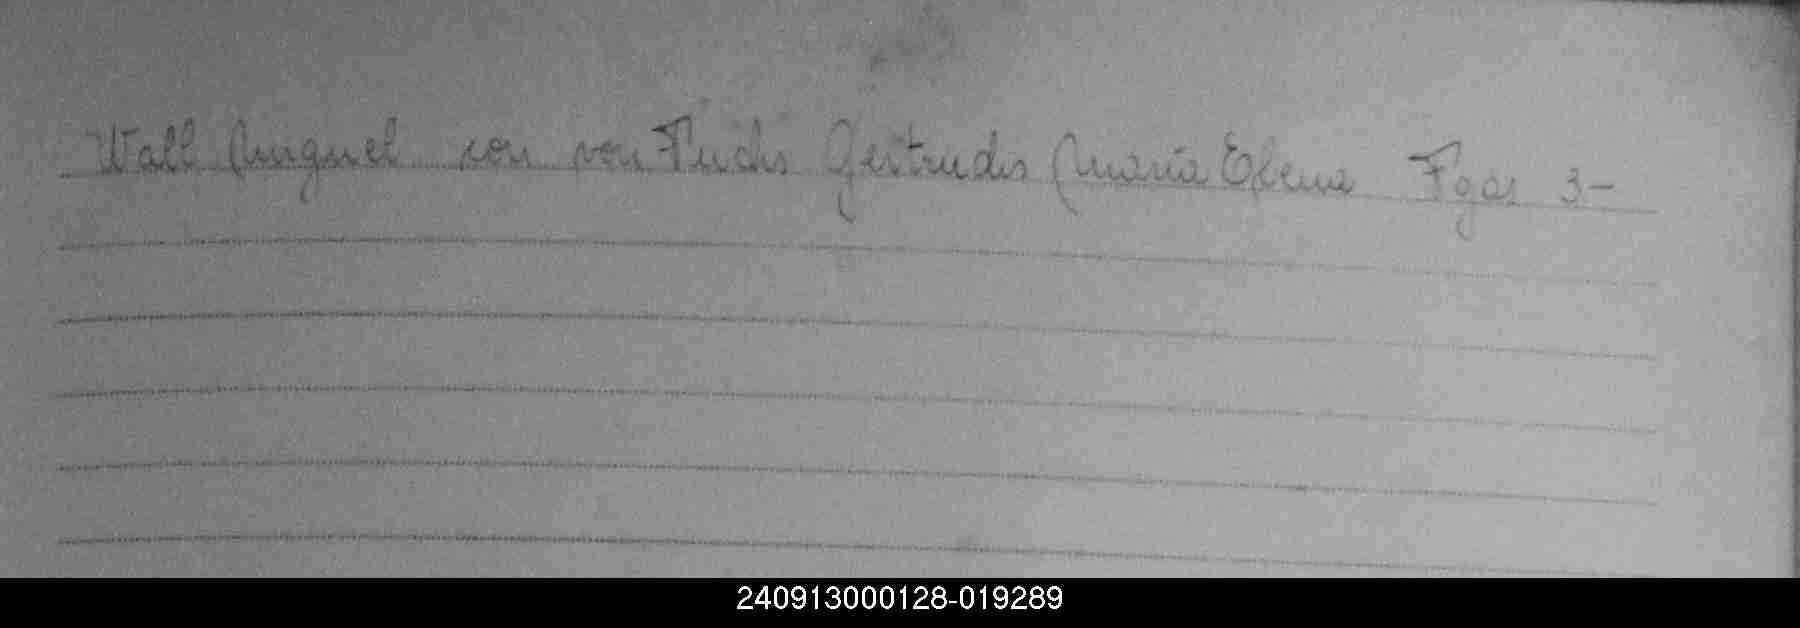 Wall Miguel con von Fuchs Gertrudis Maria Elena Fgas 3-
240913000128-019289